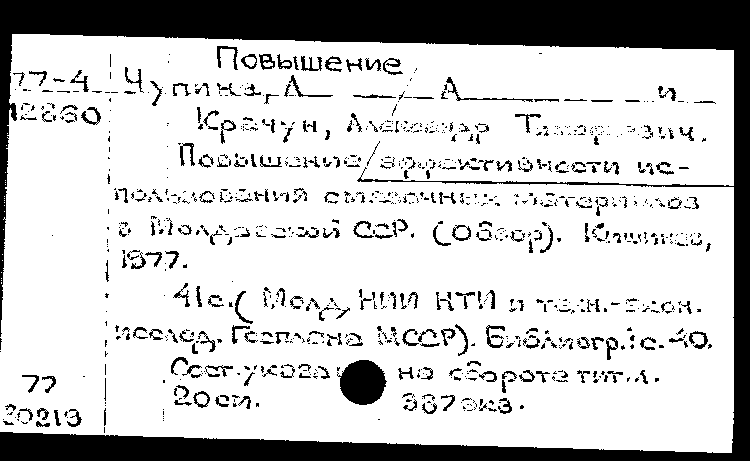 Повышение
77-4 Чупина, Л А и
12860 Крачун, Александр Тимофеевич.
Повышение эффективности ис-
пользования смазочных материалов
в Молдавской ССР. (Обзор). Кишинев,
1977.
41 с. (Молд. НИИ НТИ и техн.-экон.
исслед. Госплана МССР). Библиогр.: с. 40.
Сост. указаны на обороте тит. л.
77 20 см. 337 экз.
20219